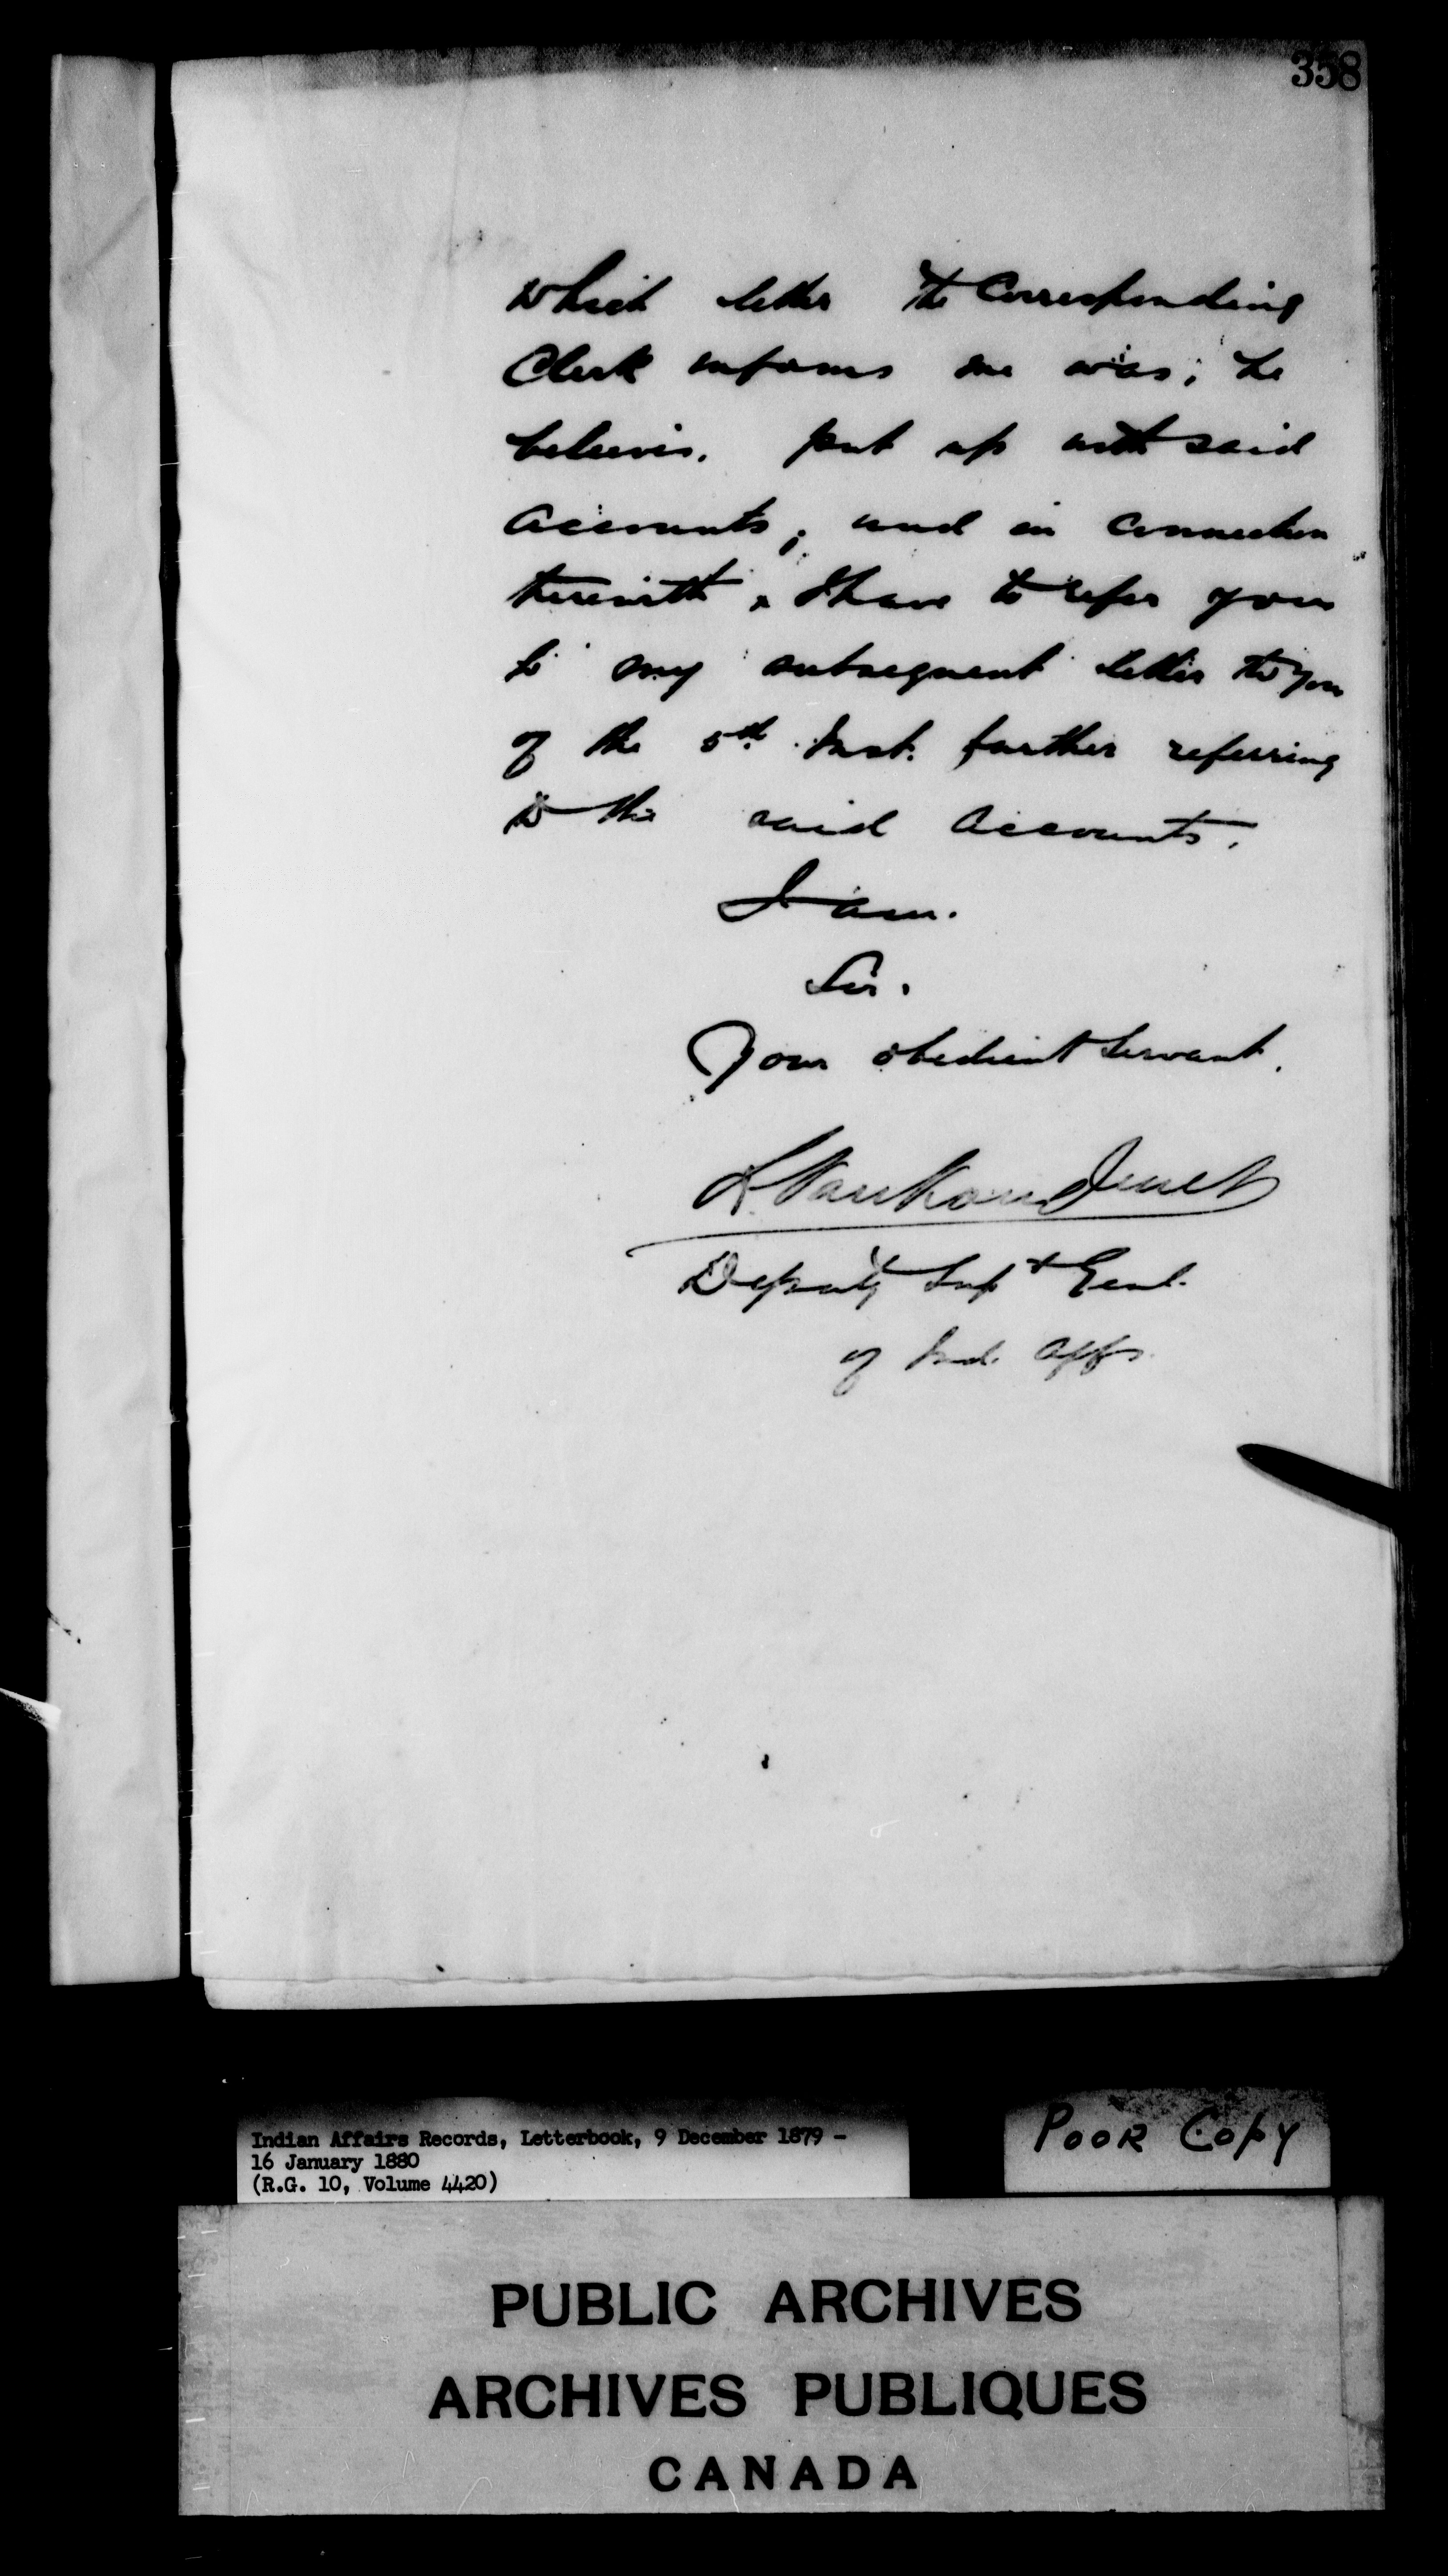 358
which letter the Corresponding
Clerk informs me was, he
believes, put up with said
accounts, and in connection
therewith, I have to refer you
to my subsequent letter to you
of the 5th Inst. further referring
to the said accounts.
I am.
Sir.
Your obedient servant.
L. VanKoughnet
Deputy Supt Genl.
of Ind. Affs.
Indian Affairs Records, Letterbook, 9 December 1879 -
16 January 1880
(R.G. 10, Volume 4420)
POOR COPY
PUBLIC ARCHIVES
ARCHIVES PUBLIQUES
CANADA